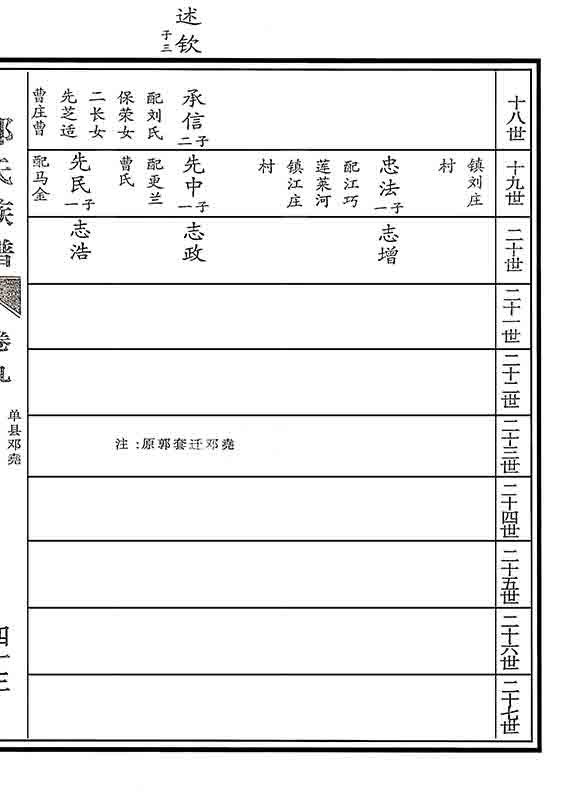 述钦
子三
十八世
承信
二子
配刘氏
保荣女
二长女
先芝适
曹庄曹
十九世
镇刘庄
村
忠法
一子
配江巧
莲莱河
镇江庄
村
先中
一子
配更兰
曹氏
先民
一子
配马金
二十世
志增
志政
志浩
二十一世
二十二世
二十三世
注：原郭套迁邓尧
二十四世
二十五世
二十六世
二十七世
氏族谱
卷九
单县邓尧